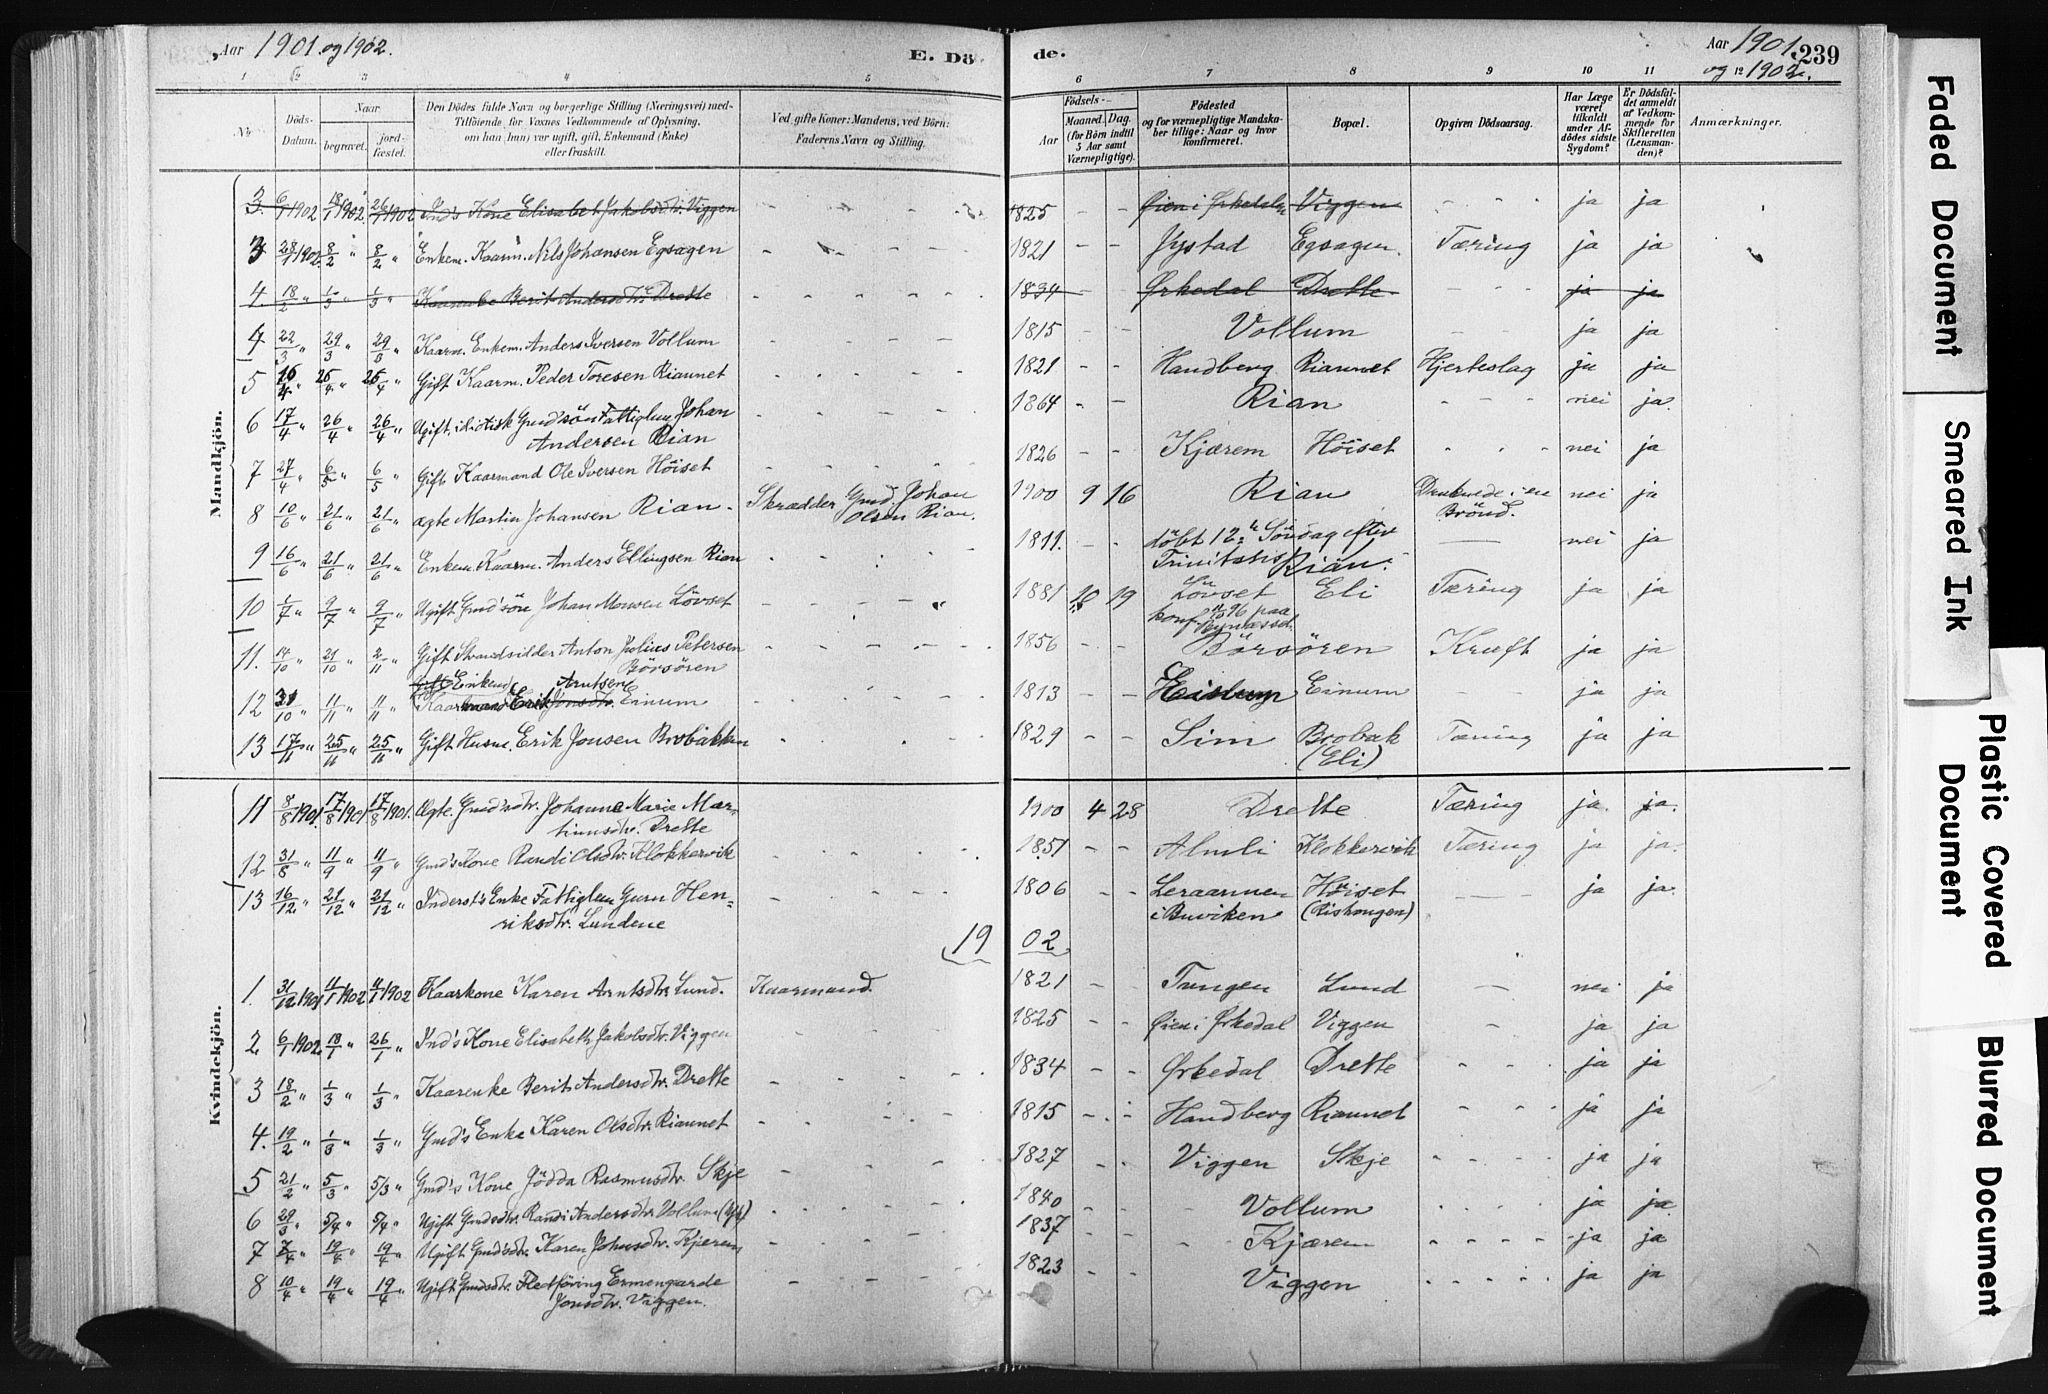 Aar 1901 og 1902. E. Döde. Aar 1901 og 1902. 239
1 2 3 4 5 6 7 8 9 10 11 12
No.
Döds-Datum.
Naar
begravet.
jord-fæstet.
Den Dödes fulde Navn og borgerlige Stilling (Næringsvei) med-
Tilföiende for Voxnes Vedkommende af Oplysning,
om han (hun) var ugift, gift, Enkemand (Enke)
eller fraskilt.
Ved gifte Koner: Mandens, ved Börn:
Faderens Navn og Stilling.
Födsels-
Aar
Maaned. Dag.
(for Börn indtil
5 Aar samt
Værnepligtige).
Födested
og for værnepligtige Mandska-
ber tillige: Naar og hvor
konfirmeret.
Bopæl.
Opgiven Dödsaarsag.
Har Læge
været
tilkaldt
under Af-
dödes sidste
Sygdom?
Er Dödsfal-
det anmeldt
af Vedkom-
mende for
Skifteretten
(Lensman-
den)?
Anmærkninger.
Mandkjön.
3. 6/1 1902 18/1 1902 26/1 1902 Ind's Kone Elisabet Jakobsdtr. Viggen - - - 1825 - - Öien i Ørkedalen Viggen - - - ja ja
3 28/1 1902 8/2 " 8/2 " Enkem. Kaarm. Nils Johansen Egsagen - - - 1821 - - Jystad Egsagen Tæring ja ja
4 18/2 " 1/3 " 1/3 " Kaarenke Berit Andersdtr. Drette - - - 1834 Ørkedal Drette - - ja ja
4 22/3 " 29/3 " 29/3 " Kaarm. Enkem. Anders Iversen Vollum - - - 1815 - - Vollum - - ja ja
5 16/4 " 25/4 " 25/4 " Gift Kaarm. Peder Toresen Riaunet - - - 1821 - - Handberg Riaunet Hjerteslag ja ja
6 17/4 " 26/4 " 26/4 " Ugift. idiotisk Gmdsön Fattiglem Johan - - - 1864 - - Rian - - - nei ja.
Andersen Rian
7 27/4 " 6/5 " 6/5 " Gift Kaarmand Ole Iversen Höiset - - - 1826 - - Kjærem Höiset - - - nei ja
8 10/6 " 21/6 " 21/6 " ægte Martin Johansen Rian. Skrædder Gmd. Johan 1900 9 16 Rian Druknede i en nei ja
Olsen Rian. Brönd.
9 16/6 " 21/6 " 21/6 " Enkem. Kaarm. Anders Ellingsen Rian - - - 1811. - - döbt 12te Söndag efter — nei ja
Trinitatis Rian.
10 1/7 " 9/7 " 9/7 " Ugift Gmd'sön Johan Monsen Lövset - - - 1881 10 19 Lövset Eli Tæring ja ja
konf. 96 paa
11. 14/10 " 21/10 " 2/11 " Gift Strandsidder Anton Julius Petersen - - - 1856 - - Börsören Kræft ja ja
Börsören
12 31/10 " 11/11 " 11/11 " Gift Enkem. Arntsen
Kaarmand Erik Jonsdtr. Einum - - - 1813 - - Einum - - ja ja
13 17/11 " 25/11 " 25/11 " Gift Husm. Erik Jonsen Brobakken - - - 1829 - - Sim Brobak Tæring ja ja
(Eli)
Kvindekjön.
11 8/8 1901. 17/8 1901 17/8 1901. Ægte. Gmd'sdtr. Johanne Marie Mar- 1900 4 28 Drette Tæring ja. ja.
tinusdtr. Drette
12 31/8 " 11/9 " 11/9 " Gmd's Kone Randi Olsdtr. Klokkervik - - - 1851 - - Almli Klokkervik Tæring ja ja.
13 16/12 " 21/12 " 21/12 " Inderst's Enke Fattiglem Guru Hen- - - - 1806 - - Leraannen Höiset — ja ja.
riksdtr. Lundene i Buviken (Rishaugen)
1902
1. 31/12 1901 11/1 1902 11/1 1902 Kaarkone Karen Arntsdtr. Lund. Kaarmand. 1821 - - Tangen Lund — nei ja
2. 6/1 1902 18/1 " 26/1 " Ind's Kone Elisabeth Jakobsdtr. Viggen - - 1825 - - Öien i Ørkedal Viggen — ja ja
3 18/2 " 1/3 " 1/3 " Kaarenke Berit Andersdtr. Drette - - - 1834 - - Ørkedal Drette - - ja ja
4. 19/2 " 1/3 " 1/3 " Gmd's Enke Karen Olsdtr. Riaunet - - - 1815 - - Handberg Riaunet - - - ja ja
5 21/2 " 5/3 " 5/3 " Gmd's Kone Jödda Rasmusdtr. Skje - - - 1827 - - Viggen Skje - - - ja ja
6 29/3 " 5/4 " 5/4 " Ugift Gmdsdtr. Randi Andersdtr. Vollum - - - 1840 - - Vollum - - - ja ja
7 7/4 " 19/4 " 19/4 " Ugift Gmd'sdtr. Karen Johnsdtr. Kjærem - - - 1837 - - Kjærem - - - ja ja
8 10/4 " 19/4 " 19/4 " Ugift Gmdsdtr. Fledföring Ermengarde - - - 1823 - - Viggen - - - ja ja
Jonsdtr. Viggen.
Faded Document
Smeared Ink
Plastic Covered
Document
Blurred Document